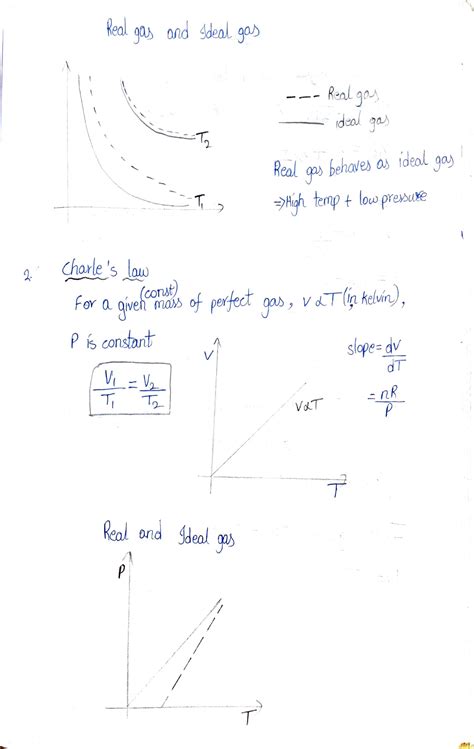 Real gas and Ideal gas
--- Real gas
— ideal gas
T2
T1
Real gas behaves as ideal gas
⇒ High temp + low pressure
2. Charle's law
(const)
For a given mass of perfect gas, V α T (in kelvin),
P is constant
V1/T1 = V2/T2
slope = dV/dT
= nR/P
V
VαT
T
Real and Ideal gas
P
T